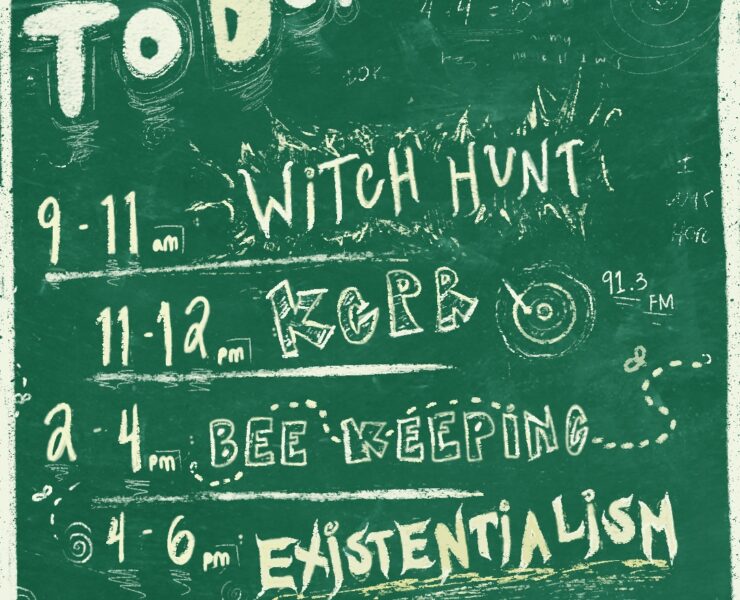 TODAY
9-11 am WITCH HUNT
11-12 pm KGPR 91.3 FM
2-4 pm BEE KEEPING
4-6 pm EXISTENTIALISM